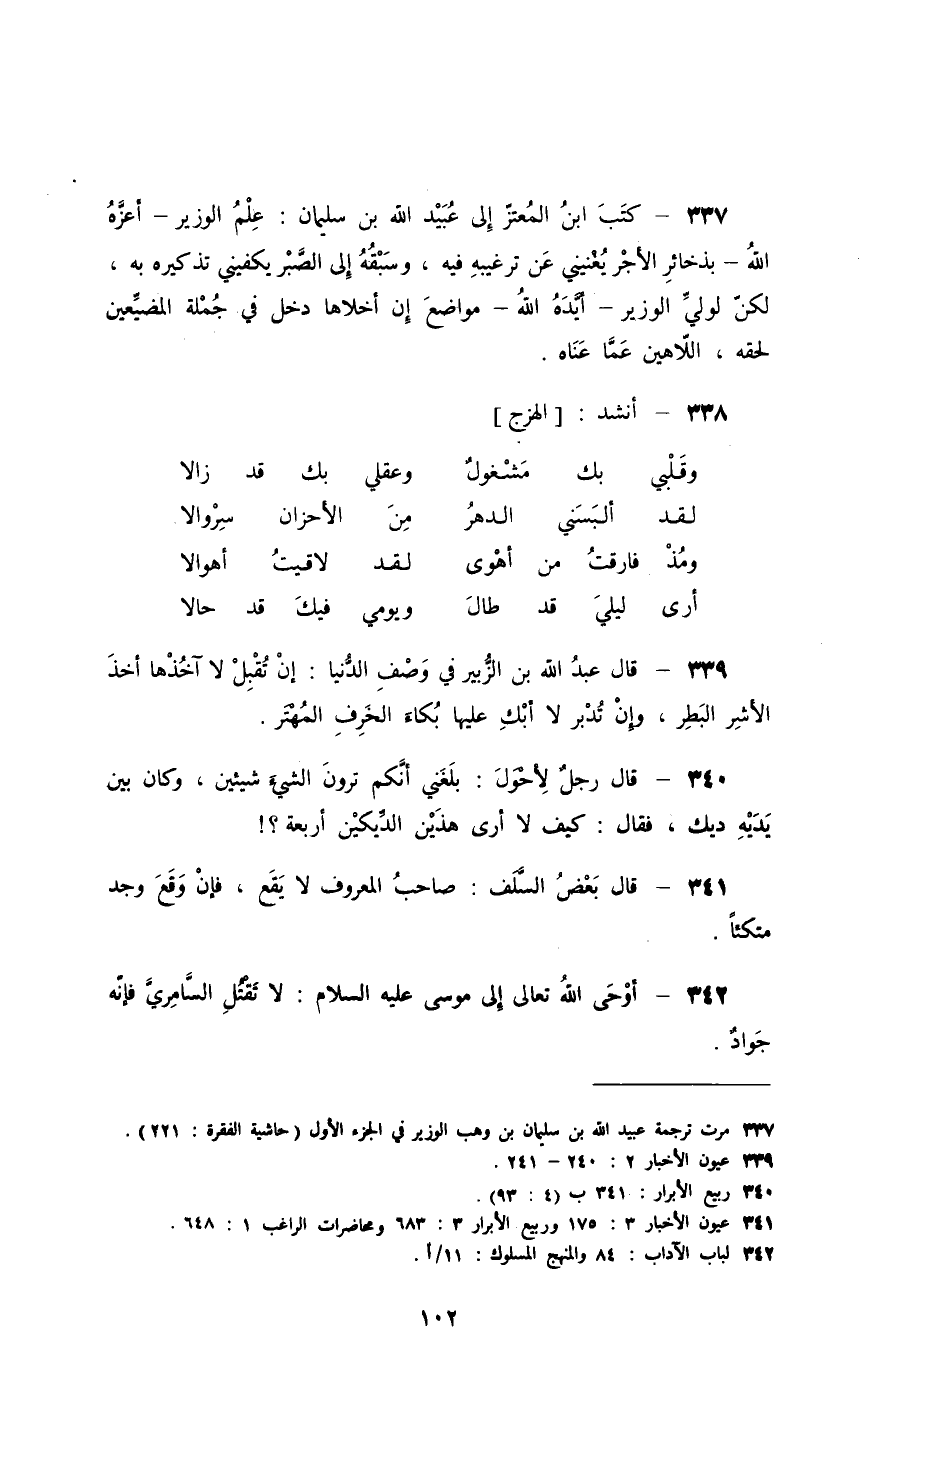 ٣٣٧ – كتَبَ ابنُ المُعتزّ إلى عُبَيْد الله بن سليمان : عِلْمُ الوزير – أعزَّهُ
اللهُ – بذخائرِ الأجْر يُغْنيني عَن ترغيبهِ فيه ، وسَبْقُهُ إلى الصَّبْر يكفيني تذكيره به ،
لكنّ لوليِّ الوزير – أيَّدَهُ اللهُ – مواضعَ إن أخلاها دخل في جُمْلة المضيِّعين
لحقه ، اللّاهين عَمَّا عَنَاه .
٣٣٨ – أنشد : [ الهزج ]
وقَلْبي بك مَشْغولٌ وعقلي بك قد زالا
لقد ألبَسَني الدهرُ مِنَ الأحزان سِرْوالا
ومُذْ فارقتُ من أهْوى لقد لاقيتُ أهوالا
أرى ليليَ قد طالَ ويومي فيكَ قد حالا
٣٣٩ – قال عبدُ الله بن الزُّبير في وَصْفِ الدُّنيا : إنْ تُقْبِلْ لا آخُذْها أخذَ
الأشِر البَطِر ، وإنْ تُدْبر لا أبْكِ عليها بُكاءَ الخَرِفِ المُهْتَر .
٣٤٠ – قال رجلٌ لِأحْوَلَ : بلَغَني أنَّكم ترونَ الشيءَ شيئين ، وكان بين
يَدَيْهِ ديك ، فقال : كيف لا أرى هذَيْن الدِّيكيْن أربعة ؟!
٣٤١ – قال بَعْضُ السَّلَف : صاحبُ المعروف لا يَقَع ، فإنْ وَقَعَ وجد
متكئاً .
٣٤٢ – أوْحَى اللهُ تعالى إلى موسى عليه السلام : لا تَقْتُلِ السَّامِريَّ فإنّه
جَوادٌ .
٣٣٧ مرت ترجمة عبيد الله بن سليمان بن وهب الوزير في الجزء الأول (حاشية الفقرة : ٢٢١) .
٣٣٩ عيون الأخبار ٢ : ٢٤٠ – ٢٤١ .
٣٤٠ ربيع الأبرار : ٣٤١ ب (٤ : ٩٣) .
٣٤١ عيون الأخبار ٣ : ١٧٥ وربيع الأبرار ٣ : ٦٨٣ ومحاضرات الراغب ١ : ٦٤٨ .
٣٤٢ لباب الآداب : ٨٤ والمنهج المسلوك : ١١/أ .
١٠٢